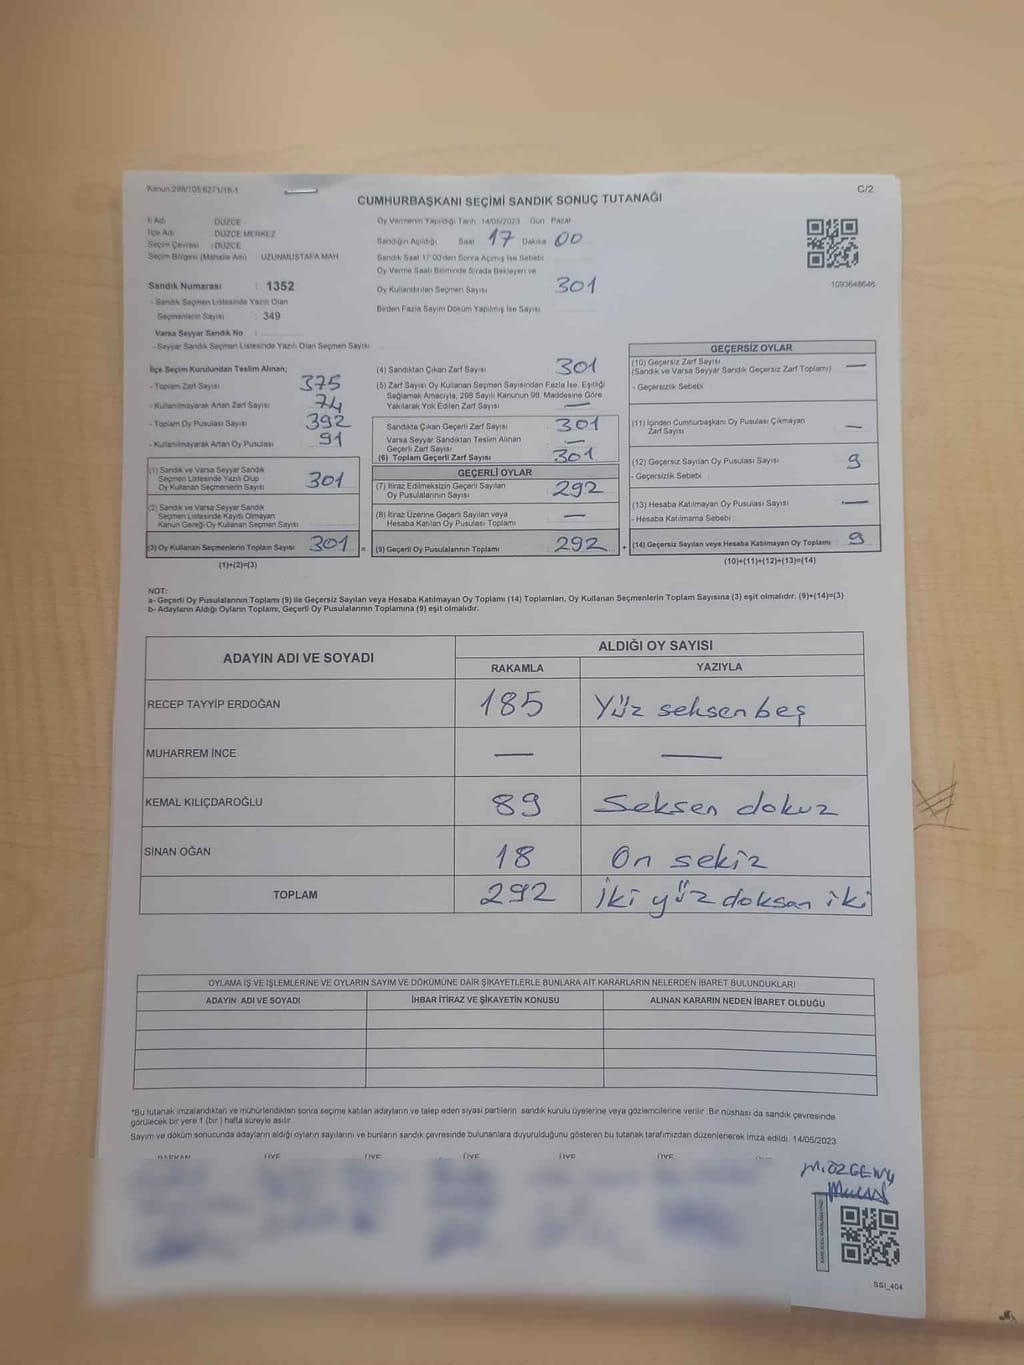 Kanun:298/105,6271/18-1
C/2
CUMHURBAŞKANI SEÇİMİ SANDIK SONUÇ TUTANAĞI
İl Adı DÜZCE
İlçe Adı DÜZCE MERKEZ
Seçim Çevresi : DÜZCE
Seçim Bölgesi (Mahalle Adı) : UZUNMUSTAFA MAH.
Sandık Numarası : 1352
- Sandık Seçmen Listesinde Yazılı Olan
Seçmenlerin Sayısı : 349
Varsa Seyyar Sandık No :
- Seyyar Sandık Seçmen Listesinde Yazılı Olan Seçmen Sayısı
Oy Vermenin Yapıldığı Tarih 14/05/2023 Gün Pazar
Sandığın Açıldığı Saat 17 Dakika 00
Sandık Saat 17:00'den Sonra Açılmış İse Sebebi
Oy Verme Saati Bitiminde Sırada Bekleyen ve
Oy Kullandırılan Seçmen Sayısı 301
Birden Fazla Sayım Döküm Yapılmış İse Sayısı
1093646646
İlçe Seçim Kurulundan Teslim Alınan;
- Toplam Zarf Sayısı 375
- Kullanılmayarak Artan Zarf Sayısı 74
- Toplam Oy Pusulası Sayısı 392
- Kullanılmayarak Artan Oy Pusulası 91
(1) Sandık ve Varsa Seyyar Sandık
Seçmen Listesinde Yazılı Olup
Oy Kullanan Seçmenlerin Sayısı 301
(2) Sandık ve Varsa Seyyar Sandık
Seçmen Listesinde Kayıtlı Olmayan
Kanun Gereği Oy Kullanan Seçmen Sayısı
(3) Oy Kullanan Seçmenlerin Toplam Sayısı 301 =
(1)+(2)=(3)
(4) Sandıktan Çıkan Zarf Sayısı 301
(5) Zarf Sayısı Oy Kullanan Seçmen Sayısından Fazla İse, Eşitliği
Sağlamak Amacıyla, 298 Sayılı Kanunun 98. Maddesine Göre
Yakılarak Yok Edilen Zarf Sayısı —
Sandıkta Çıkan Geçerli Zarf Sayısı 301
Varsa Seyyar Sandıktan Teslim Alınan
Geçerli Zarf Sayısı —
(6) Toplam Geçerli Zarf Sayısı 301
GEÇERLİ OYLAR
(7) İtiraz Edilmeksizin Geçerli Sayılan
Oy Pusulalarının Sayısı 292
(8) İtiraz Üzerine Geçerli Sayılan veya
Hesaba Katılan Oy Pusulası Toplamı —
(9) Geçerli Oy Pusulalarının Toplamı 292 +
GEÇERSİZ OYLAR
(10) Geçersiz Zarf Sayısı
(Sandık ve Varsa Seyyar Sandık Geçersiz Zarf Toplamı) —
- Geçersizlik Sebebi
(11) İçinden Cumhurbaşkanı Oy Pusulası Çıkmayan
Zarf Sayısı —
(12) Geçersiz Sayılan Oy Pusulası Sayısı 9
- Geçersizlik Sebebi
(13) Hesaba Katılmayan Oy Pusulası Sayısı —
- Hesaba Katılmama Sebebi :
(14) Geçersiz Sayılan veya Hesaba Katılmayan Oy Toplamı 9
(10)+(11)+(12)+(13)=(14)
NOT:
a- Geçerli Oy Pusulalarının Toplamı (9) ile Geçersiz Sayılan veya Hesaba Katılmayan Oy Toplamı (14) Toplamları, Oy Kullanan Seçmenlerin Toplam Sayısına (3) eşit olmalıdır. (9)+(14)=(3)
b- Adayların Aldığı Oyların Toplamı, Geçerli Oy Pusulalarının Toplamına (9) eşit olmalıdır.
ADAYIN ADI VE SOYADI ALDIĞI OY SAYISI
RAKAMLA YAZIYLA
RECEP TAYYİP ERDOĞAN 185 Yüz seksen beş
MUHARREM İNCE — —
KEMAL KILIÇDAROĞLU 89 Seksen dokuz
SİNAN OĞAN 18 On sekiz
TOPLAM 292 İki yüz doksan iki
OYLAMA İŞ VE İŞLEMLERİNE VE OYLARIN SAYIM VE DÖKÜMÜNE DAİR ŞİKAYETLERLE BUNLARA AİT KARARLARIN NELERDEN İBARET BULUNDUKLARI
ADAYIN ADI VE SOYADI İHBAR İTİRAZ VE ŞİKAYETİN KONUSU ALINAN KARARIN NEDEN İBARET OLDUĞU
*Bu tutanak imzalandıktan ve mühürlendikten sonra seçime katılan adayların ve talep eden siyasi partilerin sandık kurulu üyelerine veya gözlemcilerine verilir. Bir nüshası da sandık çevresinde
görülecek bir yere 1 (bir) hafta süreyle asılır.
Sayım ve döküm sonucunda adayların aldığı oyların sayılarını ve bunların sandık çevresinde bulunanlara duyurulduğunu gösteren bu tutanak tarafımızdan düzenlenerek imza edildi. 14/05/2023
BAŞKAN ÜYE ÜYE ÜYE ÜYE ÜYE
M.ÖZGENÇ
SSI_404